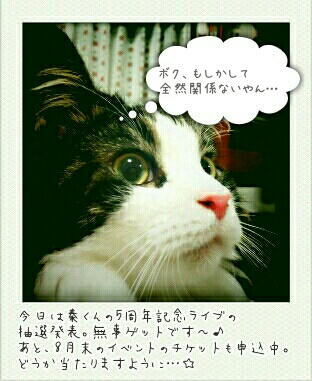 ボク、もしかして
全然関係ないやん…
今日は秦くんの5周年記念ライブの
抽選発表。無事ゲットです～♪
あと、8月末のイベントのチケットも申込中。
どうか当たりますように…☆